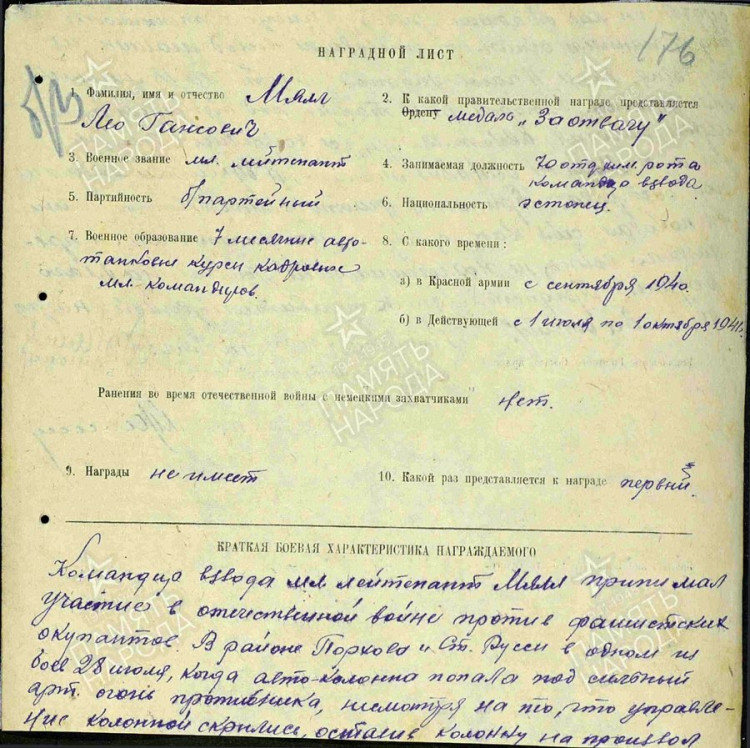 176
НАГРАДНОЙ ЛИСТ
1. Фамилия, имя и отчество Мялл
Лео Гансович
2. К какой правительственной награде представляется
Ордену медаль „За отвагу"
3. Военное звание мл. лейтенант
4. Занимаемая должность 70 отд. хим. рота
командир взвода
5. Партийность б/партейный
6. Национальность эстонец.
7. Военное образование 7 месячние авто-
танковие курси кадровие
мл. командиров.
8. С какого времени:
а) в Красной армии с сентября 1940.
б) в Действующей с 1 июля по 1 октября 1941г.
Ранения во время отечественной войны с немецкими захватчиками нет.
9. Награды не имеет
10. Какой раз представляется к награде первий
КРАТКАЯ БОЕВАЯ ХАРАКТЕРИСТИКА НАГРАЖДАЕМОГО
Командир взвода мл лейтенант Мялл принимал
участие в отечественной войне против фашистских
окупантов. В районе Порхова и Ст. Русси в одном из
боев 28 июля, когда авто-колонна попала под сильный
арт. огонь противника, несмотря на то, что управле-
ние колонной скрились, оставив колонну на произвол
ПАМЯТЬ
НАРОДА
ПАМЯТЬ
НАРОДА
ПАМЯТЬ
НАРОДА
ПАМЯТЬ
НАРОДА
ПАМЯТЬ
НАРОДА